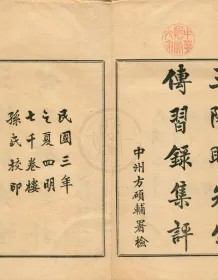 王陽明先生
傳習錄集評
中州方碩輔署檢
民國三年
之夏四明
七千卷樓
孫氏校印